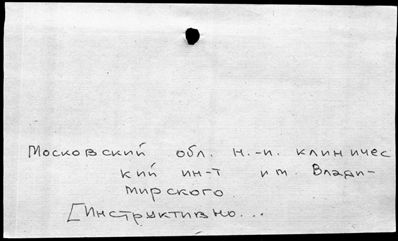 Московский обл. н.-и. клиничес
кий ин-т им. Влади-
мирского
[Инструктивно...